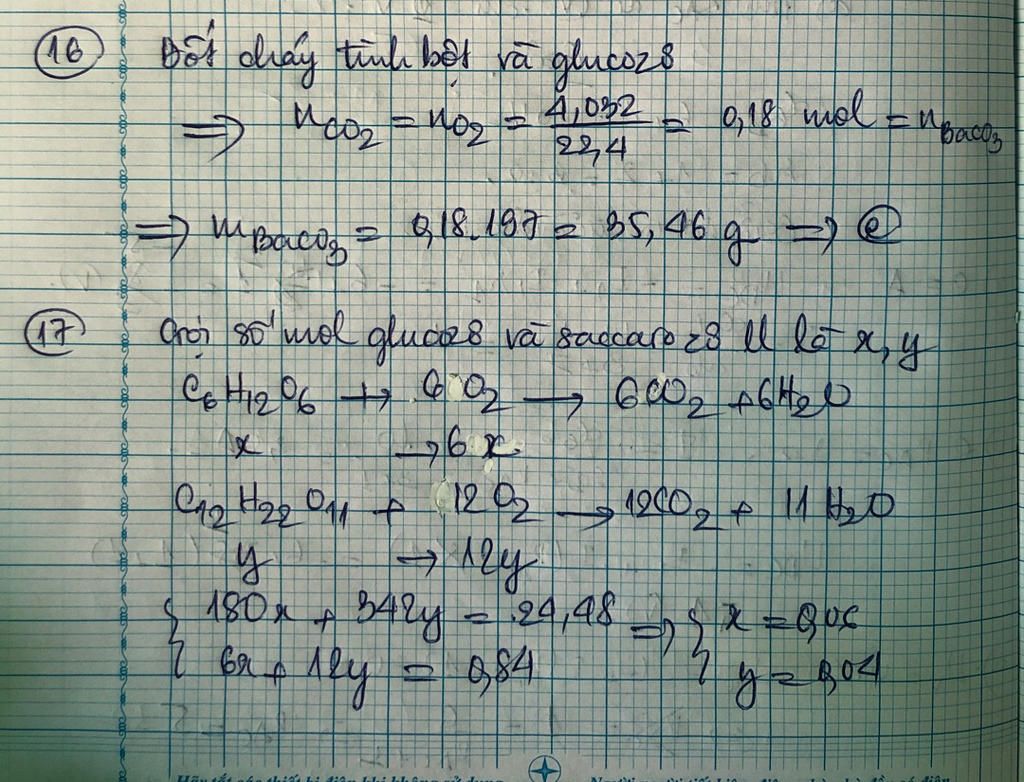 16 Đốt cháy tinh bột và glucozơ
=> nCO2 = nO2 = 4,032/22,4 = 0,18 mol = nBaCO3
=> mBaCO3 = 0,18.197 = 35,46 g => C
17 Gọi số mol glucozơ và saccarozơ ll là x, y
C6H12O6 + 6O2 → 6CO2 + 6H2O
x → 6x
C12H22O11 + 12O2 → 12CO2 + 11H2O
y → 12y
{ 180x + 342y = 24,48 => { x = 0,06
{ 6x + 12y = 0,84 { y = 0,04